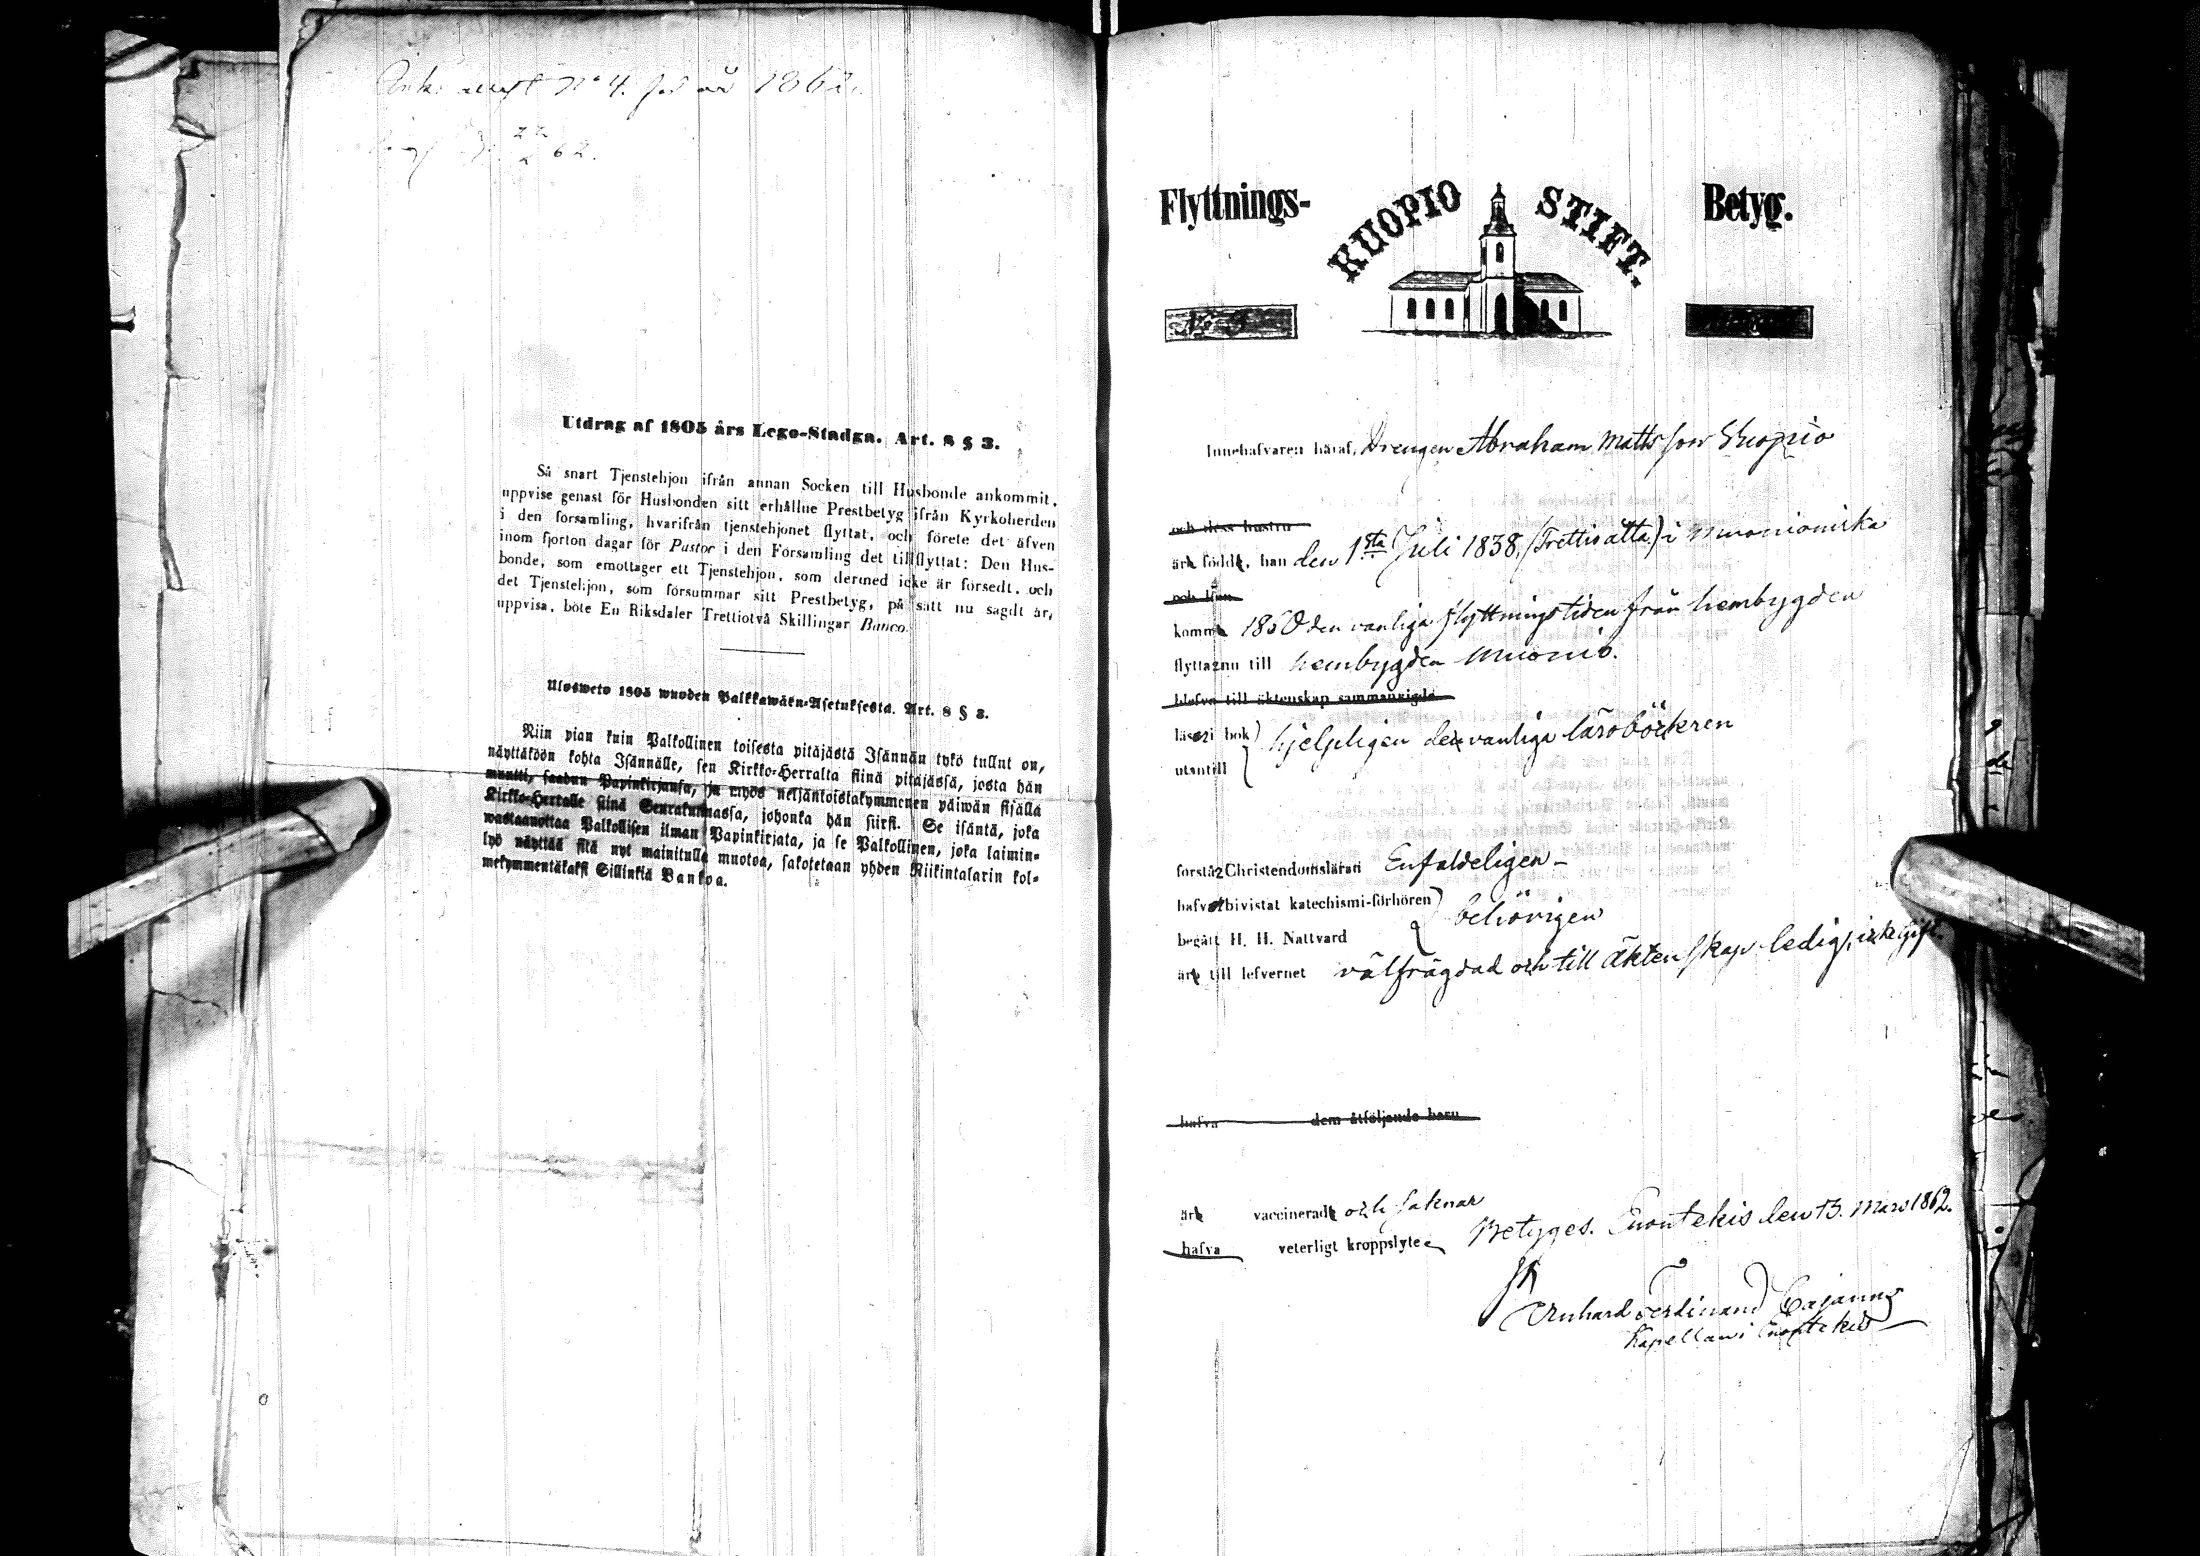 N:o 4. för år 1862.
22
62.
Utdrag af 1805 års Lego-Stadga. Art. 8 § 3.
Så snart Tjenstehjon ifrån annan Socken till Husbonde ankommit,
uppvise genast för Husbonden sitt erhållne Prestbetyg ifrån Kyrkoherden
i den församling, hvarifrån tjenstehjonet flyttat, och förete det äfven
inom fjorton dagar för Pastor i den Församling det tillflyttat: Den Hus-
bonde, som emottager ett Tjenstehjon, som dermed icke är försedt, och
det Tjenstehjon, som försummar sitt Prestbetyg, på sätt nu sagdt är,
uppvisa, böte En Riksdaler Trettiotvå Skillingar Banco.
Ulosweto 1805 wuoden Palkkawäen-Asetuksesta. Art. 8 § 3.
Niin pian kuin Palkollinen toisesta pitäjästä Isännän tykö tullut on,
näyttäköön kohta Isännälle, sen Kirkko-Herralta siinä pitäjässä, josta hän
muutti, saadun Papinkirjansa, ja myös neljäntoistakymmenen päiwän sisällä
Kirkko-Herralle siinä Seurakunnassa, johonka hän siirsi. Se isäntä, joka
wastaanottaa Palkollisen ilman Papinkirjata, ja se Palkollinen, joka laimin-
lyö näyttää sitä nyt mainitulla muotoa, sakotetaan yhden Riikintalarin kol-
mekymmentäkaksi Sillinkiä Bankoa.
Flyttnings- KUOPIO STIFT. Betyg.
Innehafvaren häraf, Drengen Abraham Mattsson Kuopio
och dess hustru
är född, han den 1sta Juli 1838, (Trettioåtta) i Muonioniska
och hon
komm 1860 den vanliga flyttningstiden från hembygden
flytta nu till hembygden Muonio.
blefvo till äktenskap sammanvigde
läser i bok) hjelpligen de vanliga läroböckeren
utantill
förstår Christendomsläran Enfaldeligen -
hafver bivistat katechismi-förhören) behörigen
begått H. H. Nattvard
är till lefvernet välfrägdad och till äktenskap ledig, icke gift.
hafva dem åtföljande barn
är vaccinerad och saknar
hafva veterligt kroppslyte Betyges. Enontekis den 13. Mars 1862.
Ferdinand Cajanus
Kapellan i Enontekis